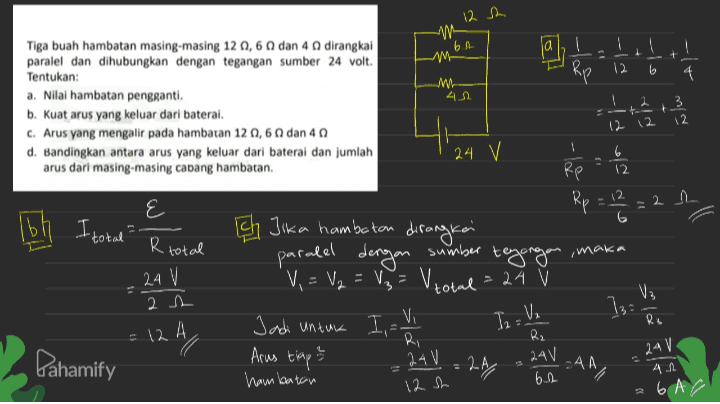 Tiga buah hambatan masing-masing 12 Ω, 6 Ω dan 4 Ω dirangkai
paralel dan dihubungkan dengan tegangan sumber 24 volt.
Tentukan:
a. Nilai hambatan pengganti.
b. Kuat arus yang keluar dari baterai.
c. Arus yang mengalir pada hambatan 12 Ω, 6 Ω dan 4 Ω
d. Bandingkan antara arus yang keluar dari baterai dan jumlah
arus dari masing-masing cabang hambatan.
12 Ω
6 Ω
4 Ω
24 V
a 1/Rp = 1/12 + 1/6 + 1/4
= 1/12 + 2/12 + 3/12
1/Rp = 6/12
Rp = 12/6 = 2 Ω
b I total = ε / R total
= 24 V / 2 Ω
= 12 A
c Jika hambatan dirangkai
paralel dengan sumber tegangan, maka
V1 = V2 = V3 = V total = 24 V
Jadi untuk
Arus tiap2
hambatan
I1 = V1/R1
= 24 V / 12 Ω = 2A
I2 = V2/R2
= 24V / 6Ω = 4A
I3 = V3/R3
= 24V / 4Ω
= 6A
Pahamify